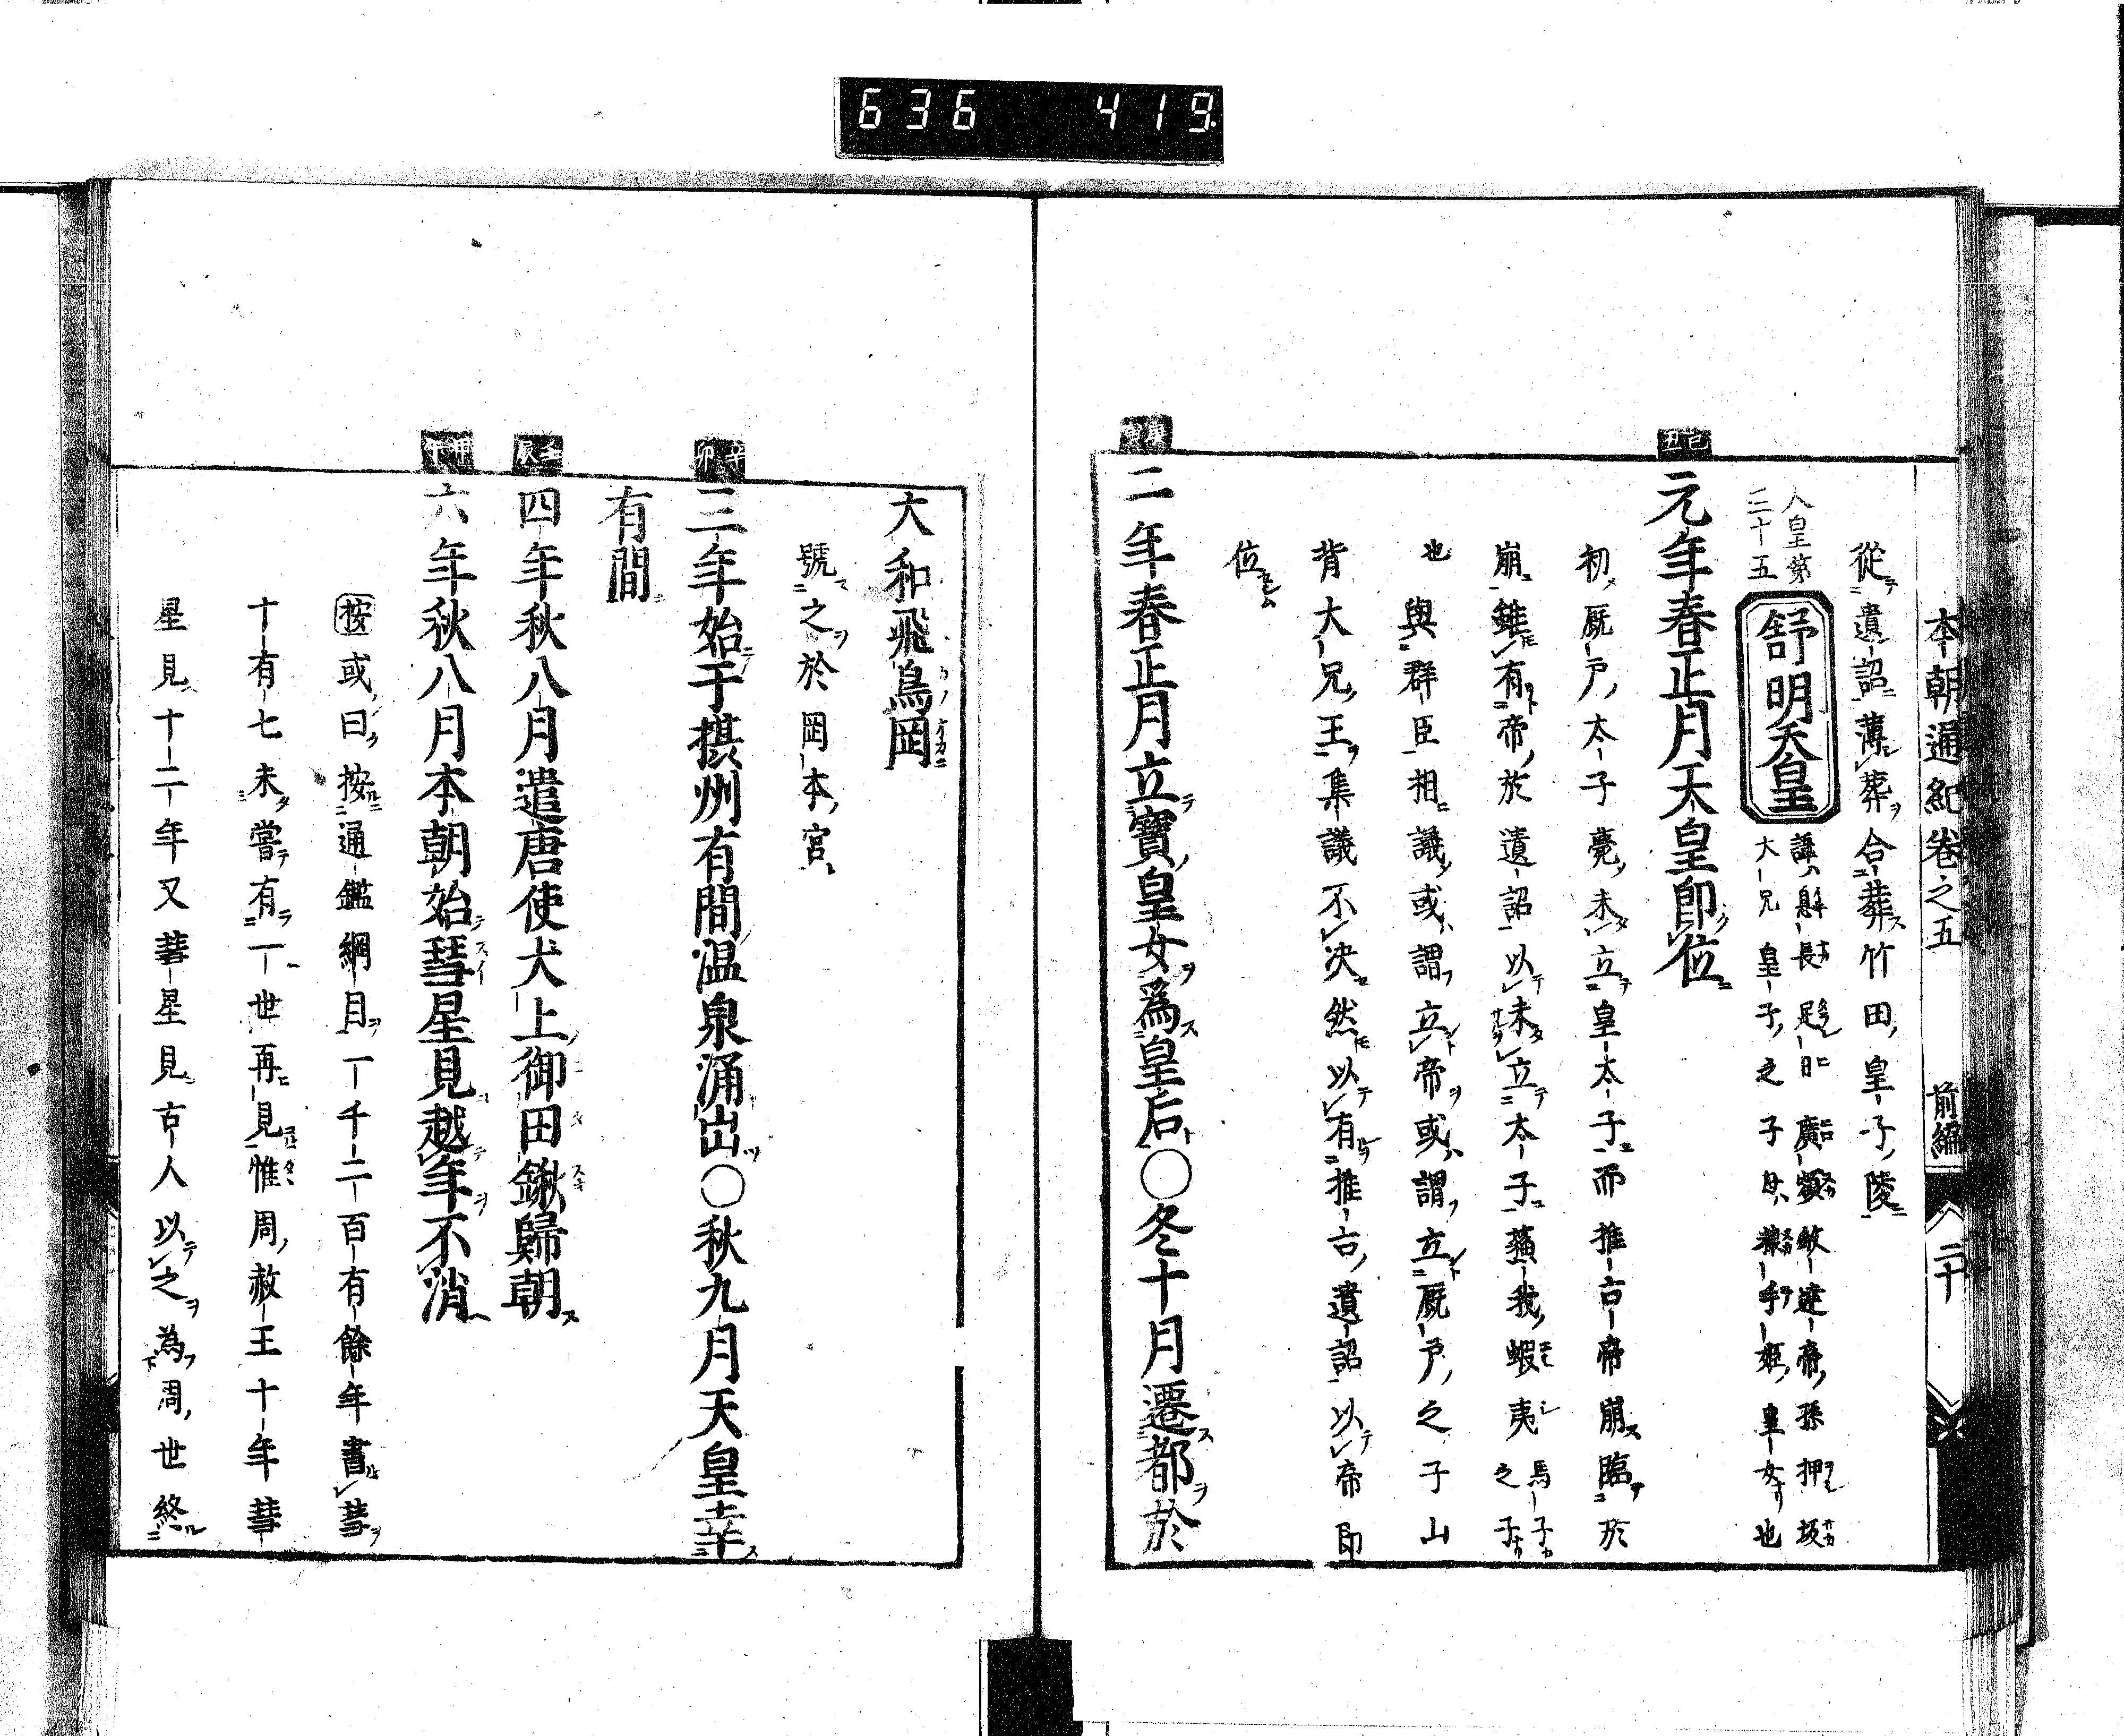 636 419
本朝通紀卷之五 前編 二十
從遺詔薄葬合葬竹田皇子陵
人皇第三十五
舒明天皇
諱息長足日廣額敏達帝孫押坂
大兄皇子之子母糠手姬皇女也
己丑
元年春正月天皇卽位
初厩戸太子薨未立皇太子而推古帝崩臨於
崩雖有帝於遺詔以未立太子蘓我蝦夷馬子之子
也與群臣相議或謂立帝或謂立厩戸之子山
背大兄王集議不决然以有推古遺詔以帝卽
位
庚寅
二年春正月立寶皇女爲皇后○冬十月遷都於
大和飛鳥岡
號之於岡本宮
辛卯
三年始于摂州有間温泉涌出○秋九月天皇幸
有間
壬辰
四年秋八月遣唐使犬上御田鍬歸朝
甲午
六年秋八月本朝始彗星見越年不消
按或曰按通鑑綱目一千二百有餘年書彗
十有七未嘗有一世再見惟周赧王十年彗
星見十二年又彗星見古人以之為周世終